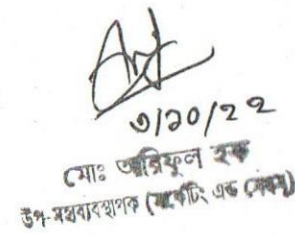 ৩/১০/২২
মোঃ আরিফুল হক
উপ-মহাব্যবস্থাপক (মার্কেটিং এন্ড সেলস)